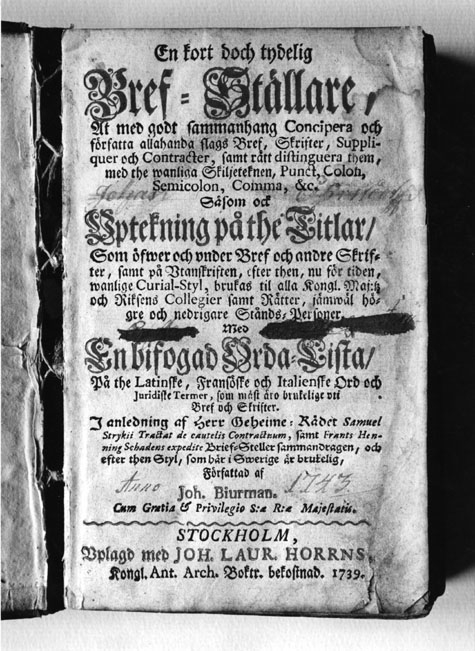 En kort doch tydelig
Bref-Ställare,
At med godt sammanhang Concipera och
författa allahanda slags Bref, Skrifter, Suppli-
quer och Contracter, samt rätt distinguera them,
med the wanliga Skiljeteknen, Punct, Colon,
Semicolon, Comma, &c.
Såsom ock
Uptekning på the Titlar/
Som öfwer och under Bref och andre Skrif-
ter, samt på Utanskriften, efter then, nu för tiden,
wanlige Curial-Styl, brukas til alla Kongl. Maj:tz
och Riksens Collegier samt Rätter, jämwäl hö-
gre och nedrigare Stånds-Personer.
Med
En bifogad Orda-Lista/
På the Latinske, Fransöske och Italienske Ord och
Juridiske Termer, som mäst äro brukelige uti
Bref och Skrifter.
I anledning af Herr Geheime-Rådet Samuel
Strykii Tractat de cautelis Contractuum, samt Frants Hen-
ning Schadens expedite Brief-Steller sammandragen, och
efter then Styl, som här i Swerige är brukelig,
Författad af
Anno 1743
Joh. Biurman.
Cum Gratia & Privilegio S:æ R:æ Majestatis.
STOCKHOLM,
Uplagd med JOH. LAUR. HORRNS,
Kongl. Ant. Arch. Boktr. bekostnad. 1739.